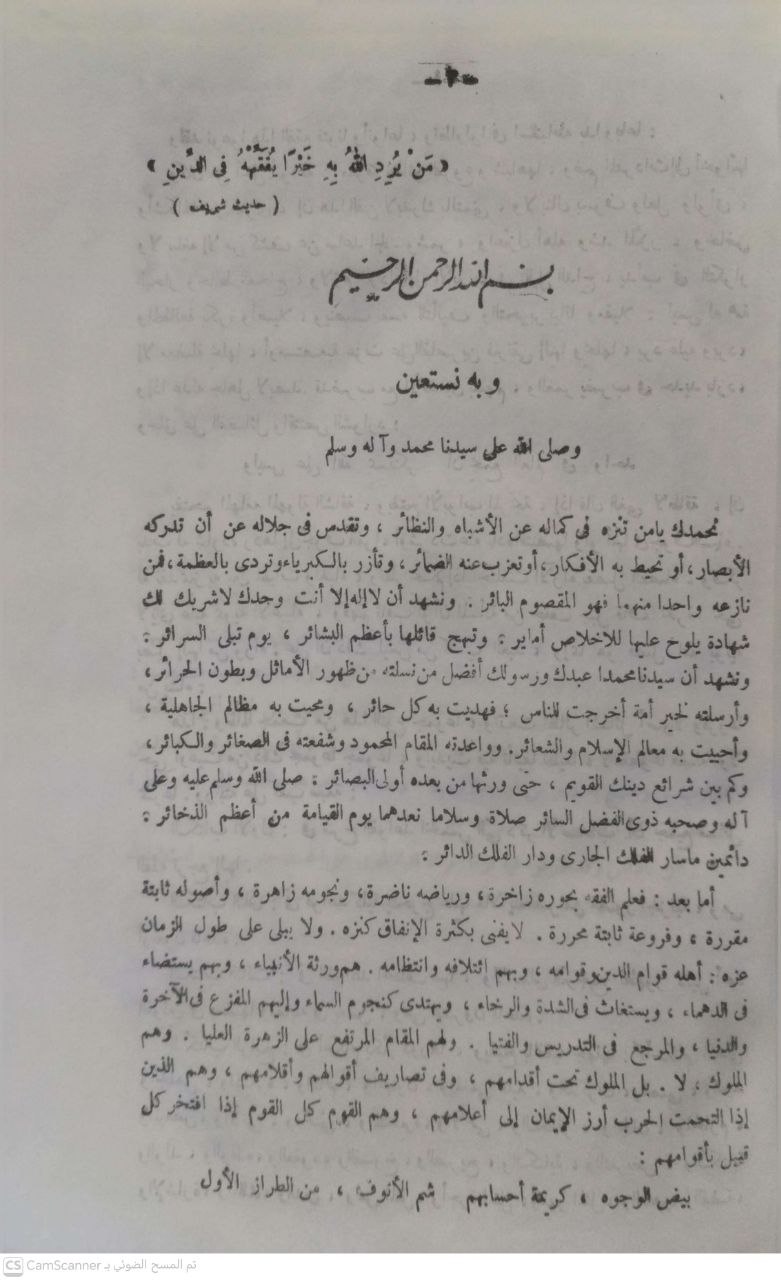 - ٢ -
« مَنْ يُرِدِ اللهُ بِهِ خَيْرًا يُفَقِّهْهُ فِي الدِّينِ »
( حديث شريف )
بسم الله الرحمن الرحيم
وبه نستعين
وصلى الله على سيدنا محمد وآله وسلم
نحمدك يامن تنزه فى كماله عن الأشباه والنظائر ، وتقدس فى جلاله عن أن تدركه
الأبصار ، أو تحيط به الأفكار ، أو تعزب عنه الضمائر ، وتأزر بالكبرياء وتردى بالعظمة ، فمن
نازعه واحدا منهما فهو المقصوم البائر . ونشهد أن لا إله إلا أنت وحدك لاشريك لك
شهادة يلوح عليها للاخلاص أماير : وتبهج قائلها بأعظم البشائر ، يوم تبلى السرائر :
ونشهد أن سيدنا محمدا عبدك ورسولك أفضل من نسلته من ظهور الأماثل وبطون الحرائر ،
وأرسلته لخير أمة أخرجت للناس ؛ فهديت به كل حائر ، ومحيت به مظالم الجاهلية ،
وأحييت به معالم الإسلام والشعائر. وواعدته المقام المحمود وشفعته فى الصغائر والكبائر ،
وكم بين شرائع دينك القويم ، حتى ورثها من بعده أولى البصائر : صلى الله وسلم عليه وعلى
آله وصحبه ذوى الفضل السائر صلاة وسلاما نعدهما يوم القيامة من أعظم الذخائر :
دائمين ماسار الفلك الجارى ودار الفلك الدائر :
أما بعد : فعلم الفقه بحوره زاخرة ، ورياضه ناضرة ، ونجومه زاهرة ، وأصوله ثابتة
مقررة ، وفروعة ثابتة محررة . لا يفنى بكثرة الإنفاق كنزه . ولا يبلى على طول الزمان
عزه : أهله قوام الدين وقوامه ، وبهم ائتلافه وانتظامه . هم ورثة الأنبياء ، وبهم يستضاء
فى الدهماء ، ويستغاث فى الشدة والرخاء ، ويهتدى كنجوم السماء وإليهم المفزع فى الآخرة
والدنيا ، والمرجع فى التدريس والفتيا . ولهم المقام المرتفع على الزهرة العليا . وهم
الملوك ، لا . بل الملوك تحت أقدامهم ، وفى تصاريف أقوالهم وأقلامهم ، وهم الذين
إذا التحمت الحرب أرز الإيمان إلى أعلامهم ، وهم القوم كل القوم إذا افتخر كل
قبيل بأقوامهم :
بيض الوجوه ، كريمة أحسابهم شم الأنوف ، من الطراز الأول
CS CamScanner تم المسح الضوئي بـ